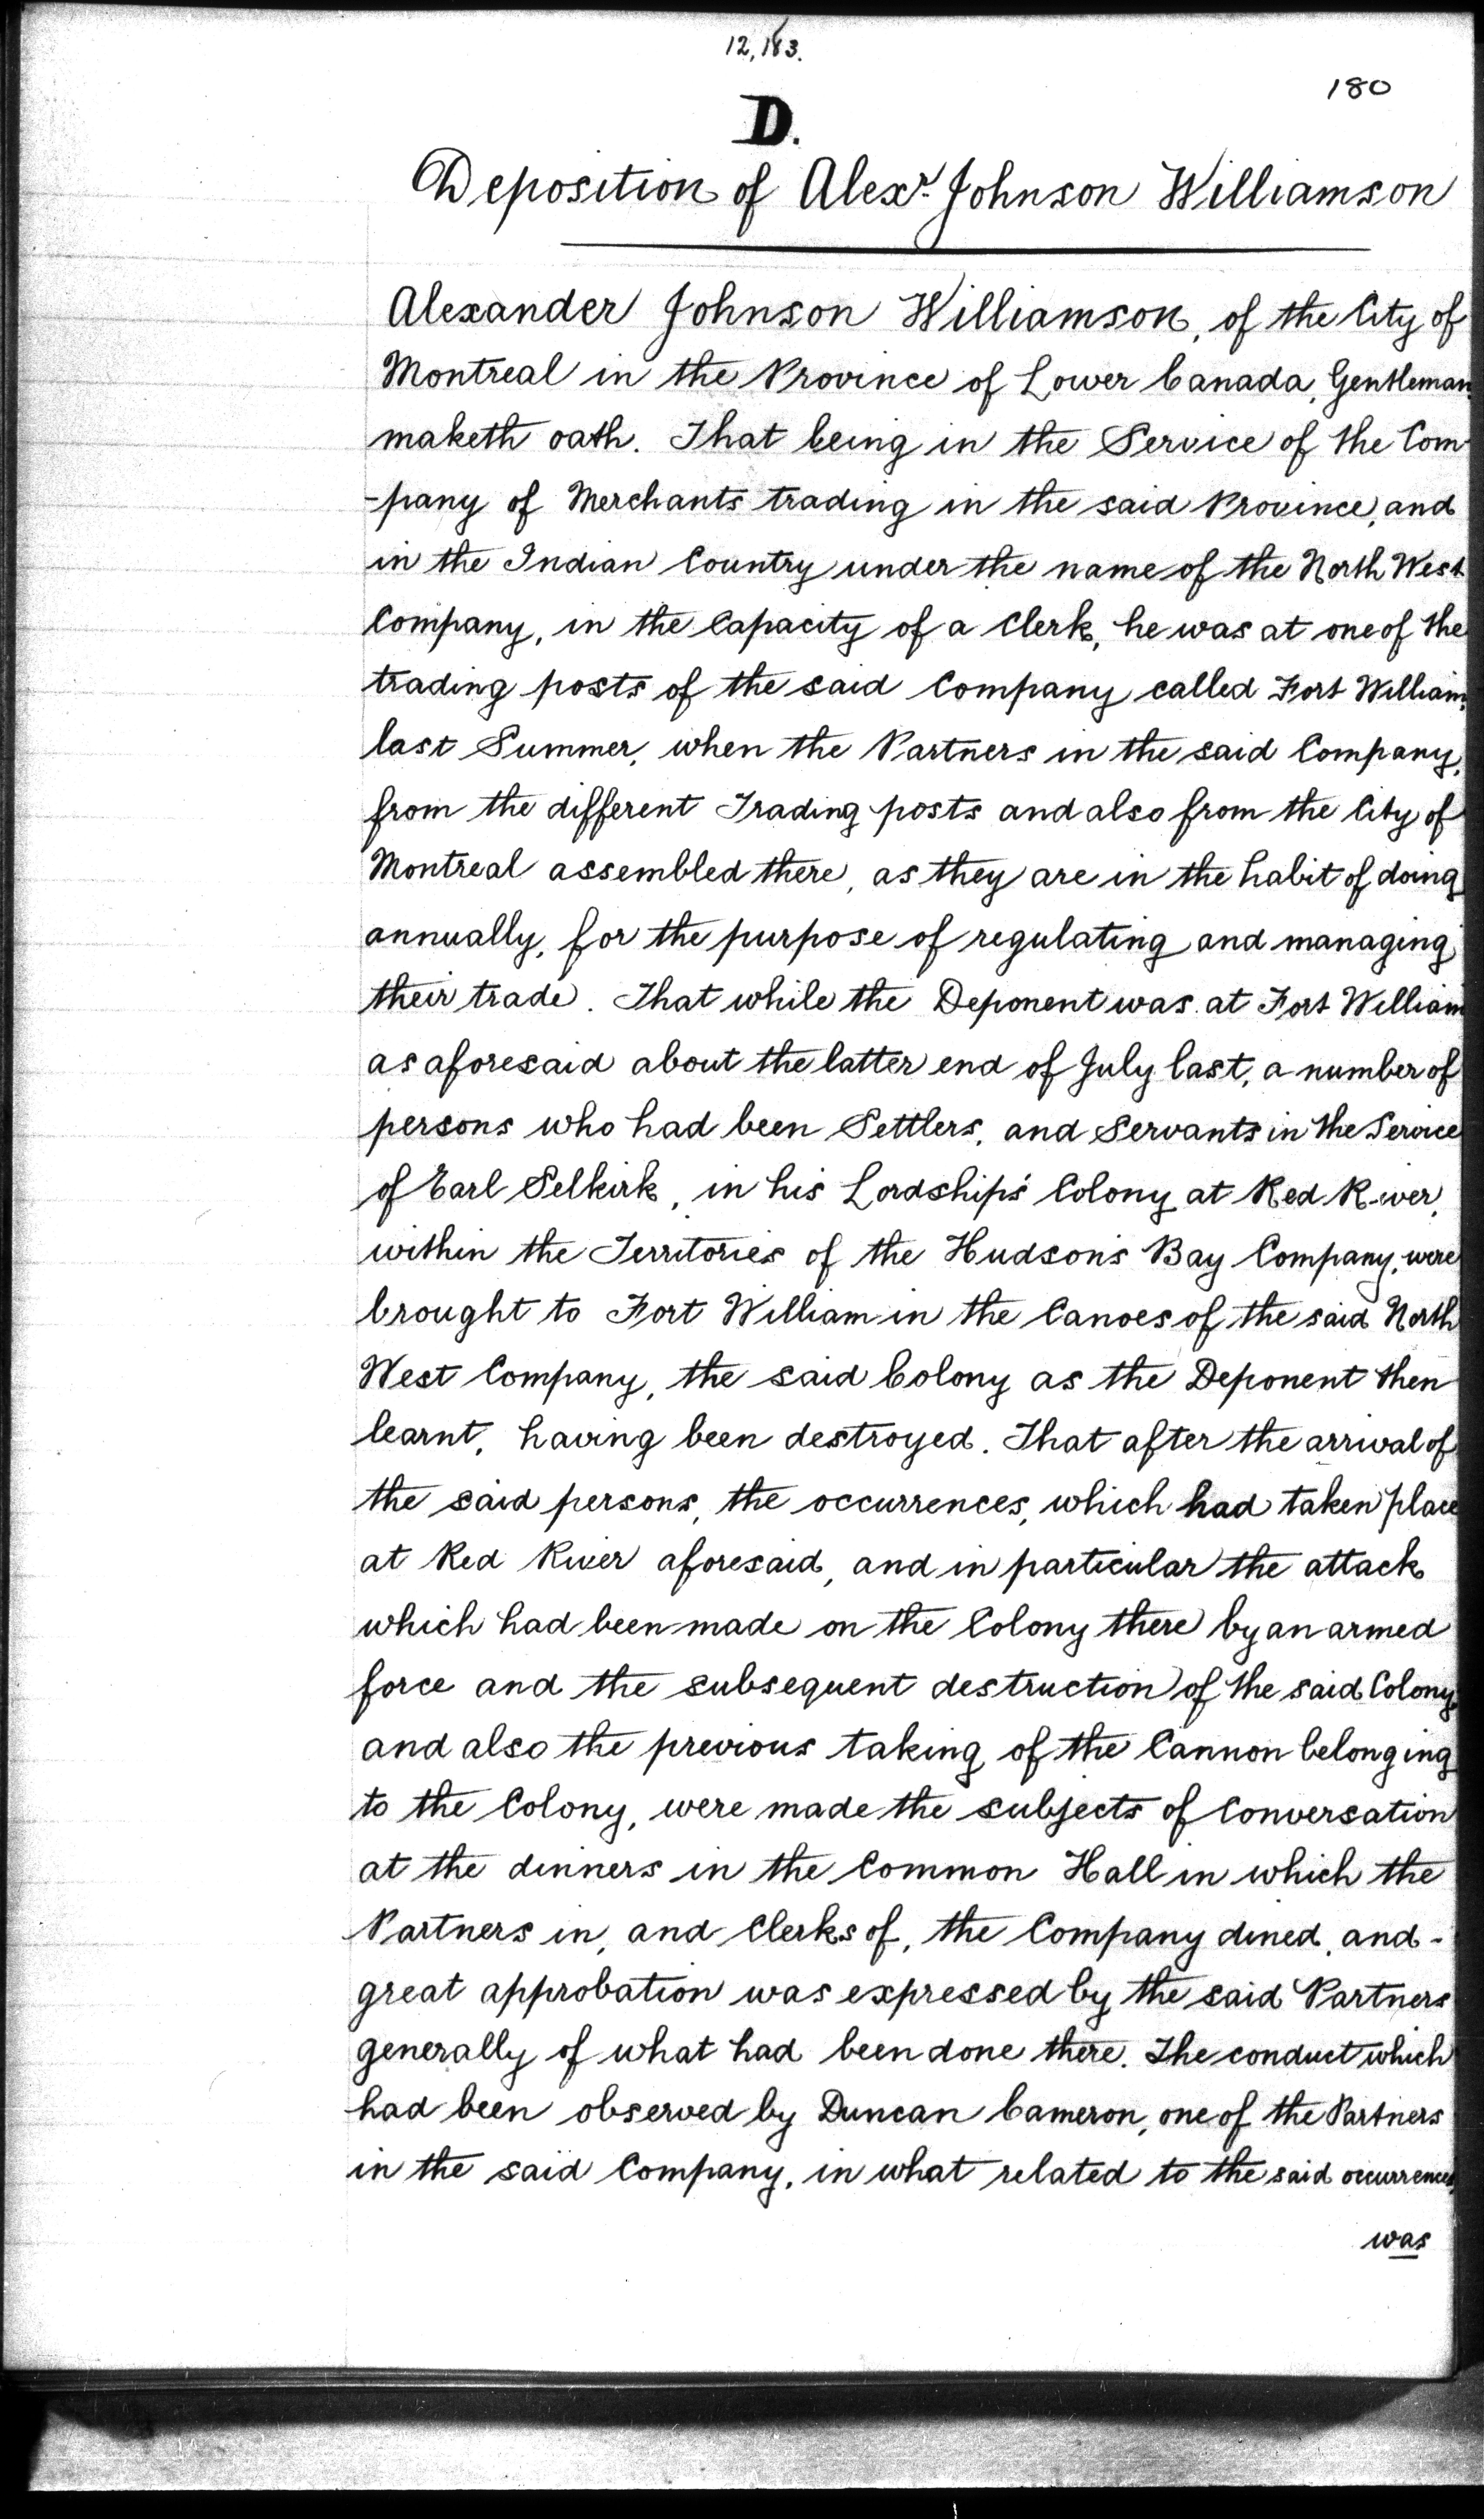 12,183.
180
D.
Deposition of Alexr. Johnson Williamson
Alexander Johnson Williamson, of the City of
Montreal in the Province of Lower Canada, Gentleman
maketh oath. That being in the Service of the Com-
-pany of Merchants trading in the said Province, and
in the Indian Country under the name of the North West
Company, in the Capacity of a Clerk, he was at one of the
trading posts of the said Company called Fort William,
last Summer, when the Partners in the said Company,
from the different Trading posts and also from the City of
Montreal assembled there, as they are in the habit of doing
annually, for the purpose of regulating and managing
their trade. That while the Deponent was at Fort William
as aforesaid about the latter end of July last, a number of
persons who had been Settlers, and Servants in the Service
of Earl Selkirk, in his Lordship's Colony at Red River,
within the Territories of the Hudson's Bay Company, were
brought to Fort William in the Canoes of the said North
West Company, the said Colony as the Deponent then
learnt, having been destroyed. That after the arrival of
the said persons, the occurrences, which had taken place
at Red River aforesaid, and in particular the attack
which had been made on the Colony there by an armed
force and the subsequent destruction of the said Colony,
and also the previous taking of the Cannon belonging
to the Colony, were made the subjects of Conversation
at the dinners in the Common Hall in which the
Partners in, and Clerks of, the Company dined, and -
great approbation was expressed by the said Partners
generally of what had been done there. The conduct which
had been observed by Duncan Cameron, one of the Partners
in the said Company, in what related to the said occurrences,
was